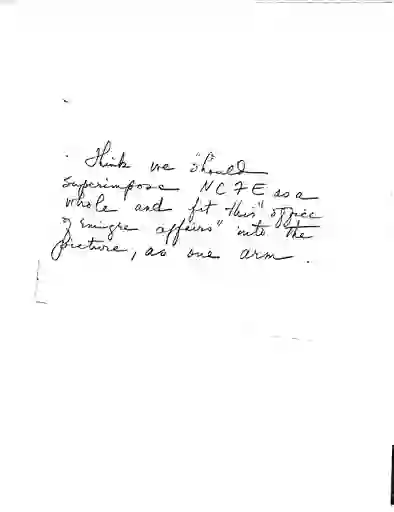 Think we should
superimpose NCFE as a
whole and fit this "office
of émigre affairs" into the
picture, as one arm.